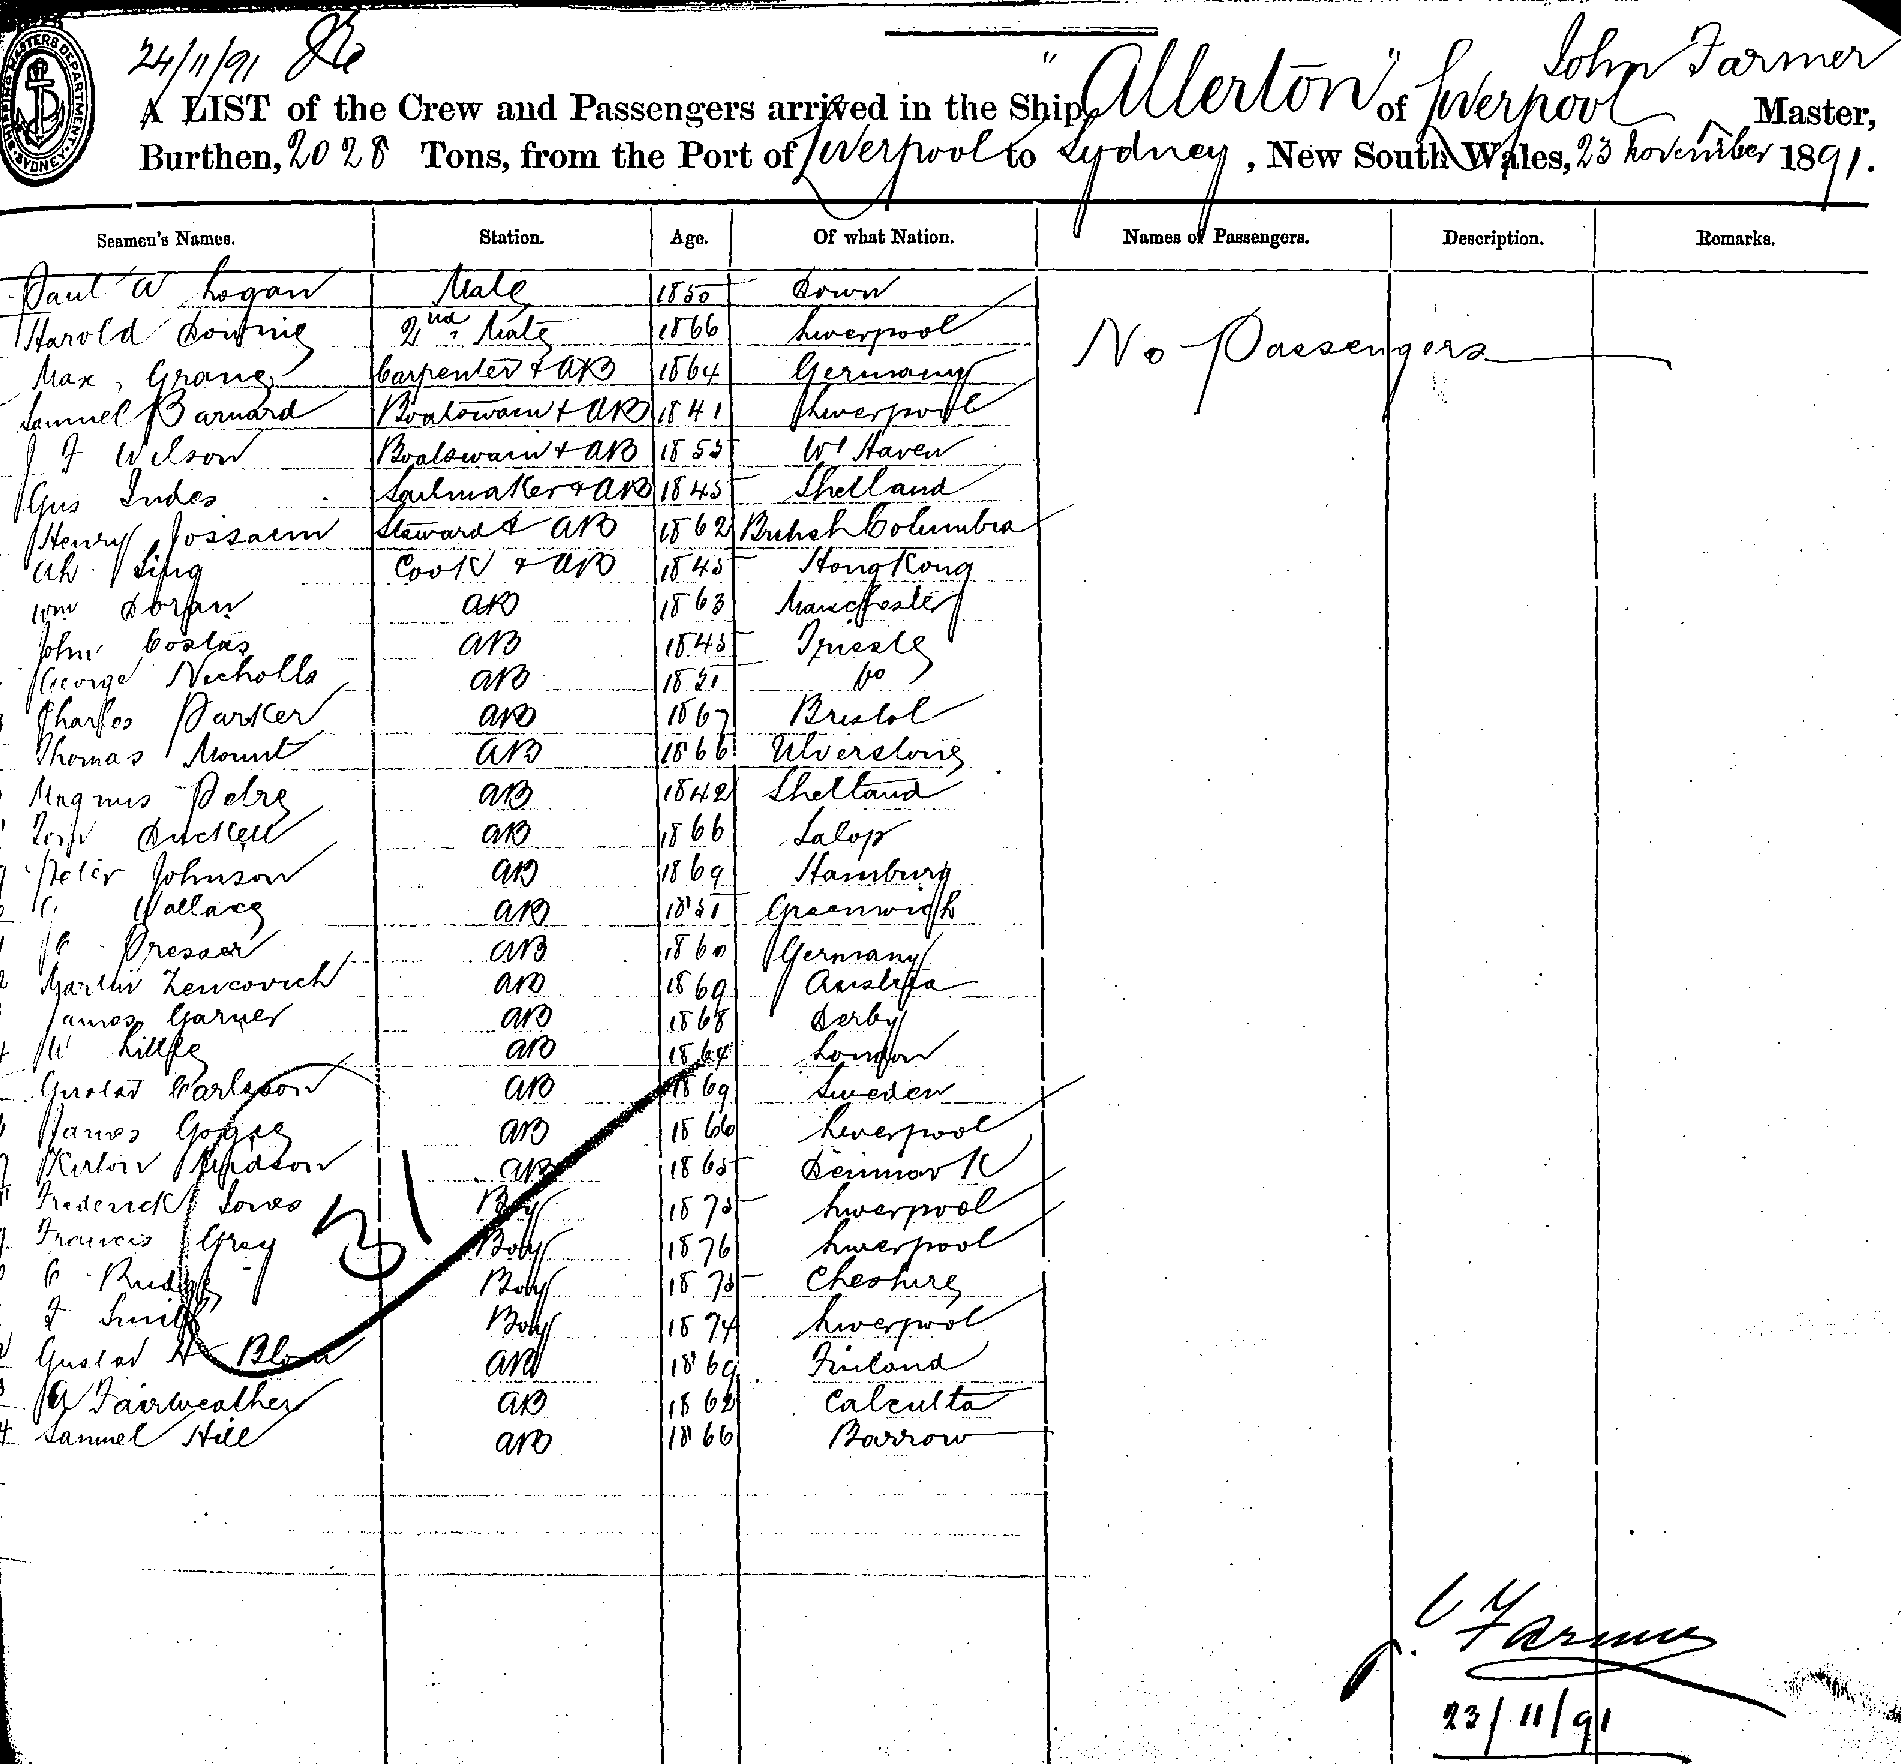 24/11/91
John Farmer
A LIST of the Crew and Passengers arrived in the Ship "Allerton" of Liverpool Master,
Burthen, 2028 Tons, from the Port of Liverpool to Sydney, New South Wales, 23 November 1891.
Seamen's Names. Station. Age. Of what Nation. Names of Passengers. Description. Remarks.
Paul W Logan Mate 1850 Down
Harold Downie 2nd Mate 1866 Liverpool
No Passengers
Max Carpenter & AB 1864 Germany
Samuel Barnard Boatswain & AB 1841 Liverpool
J F Wilson Boatswain & AB 1855 Wt Haven
Gus Indes Sailmaker & AB 1845 Shetland
Henry Steward & AB 1862 British Columbia
Ah Sing Cook & AB 1845 Hong Kong
Wm Doran AB 1863 Manchester
John Costas AB 1845 Trieste
George Nicholls AB 1851 Do
Charles Parker AB 1867 Bristol
Thomas Mount AB 1866 Ulverstone
Magnus Petre AB 1842 Shetland
Duckett AB 1866 Salop
Peter Johnson AB 1869 Hamburg
Wallace AB 1851 Greenwich
Presser AB 1860 Germany
Martin Zencovich AB 1869 Austria
James Garner AB 1868 Derby
W Little AB 1864 London
Gustav Carlsson AB 1869 Sweden
James AB 1866 Liverpool
AB 1865 Denmark
Frederick Jones Boy 1875 Liverpool
31
Francis Gray Boy 1876 Liverpool
C Rudge Boy 1875 Cheshire
F Smith Boy 1874 Liverpool
Gustav Blom AB 1869 Finland
A Fairweather AB 1862 Calcutta
Samuel Hill AB 1866 Barrow
J. Farmer
23/11/91